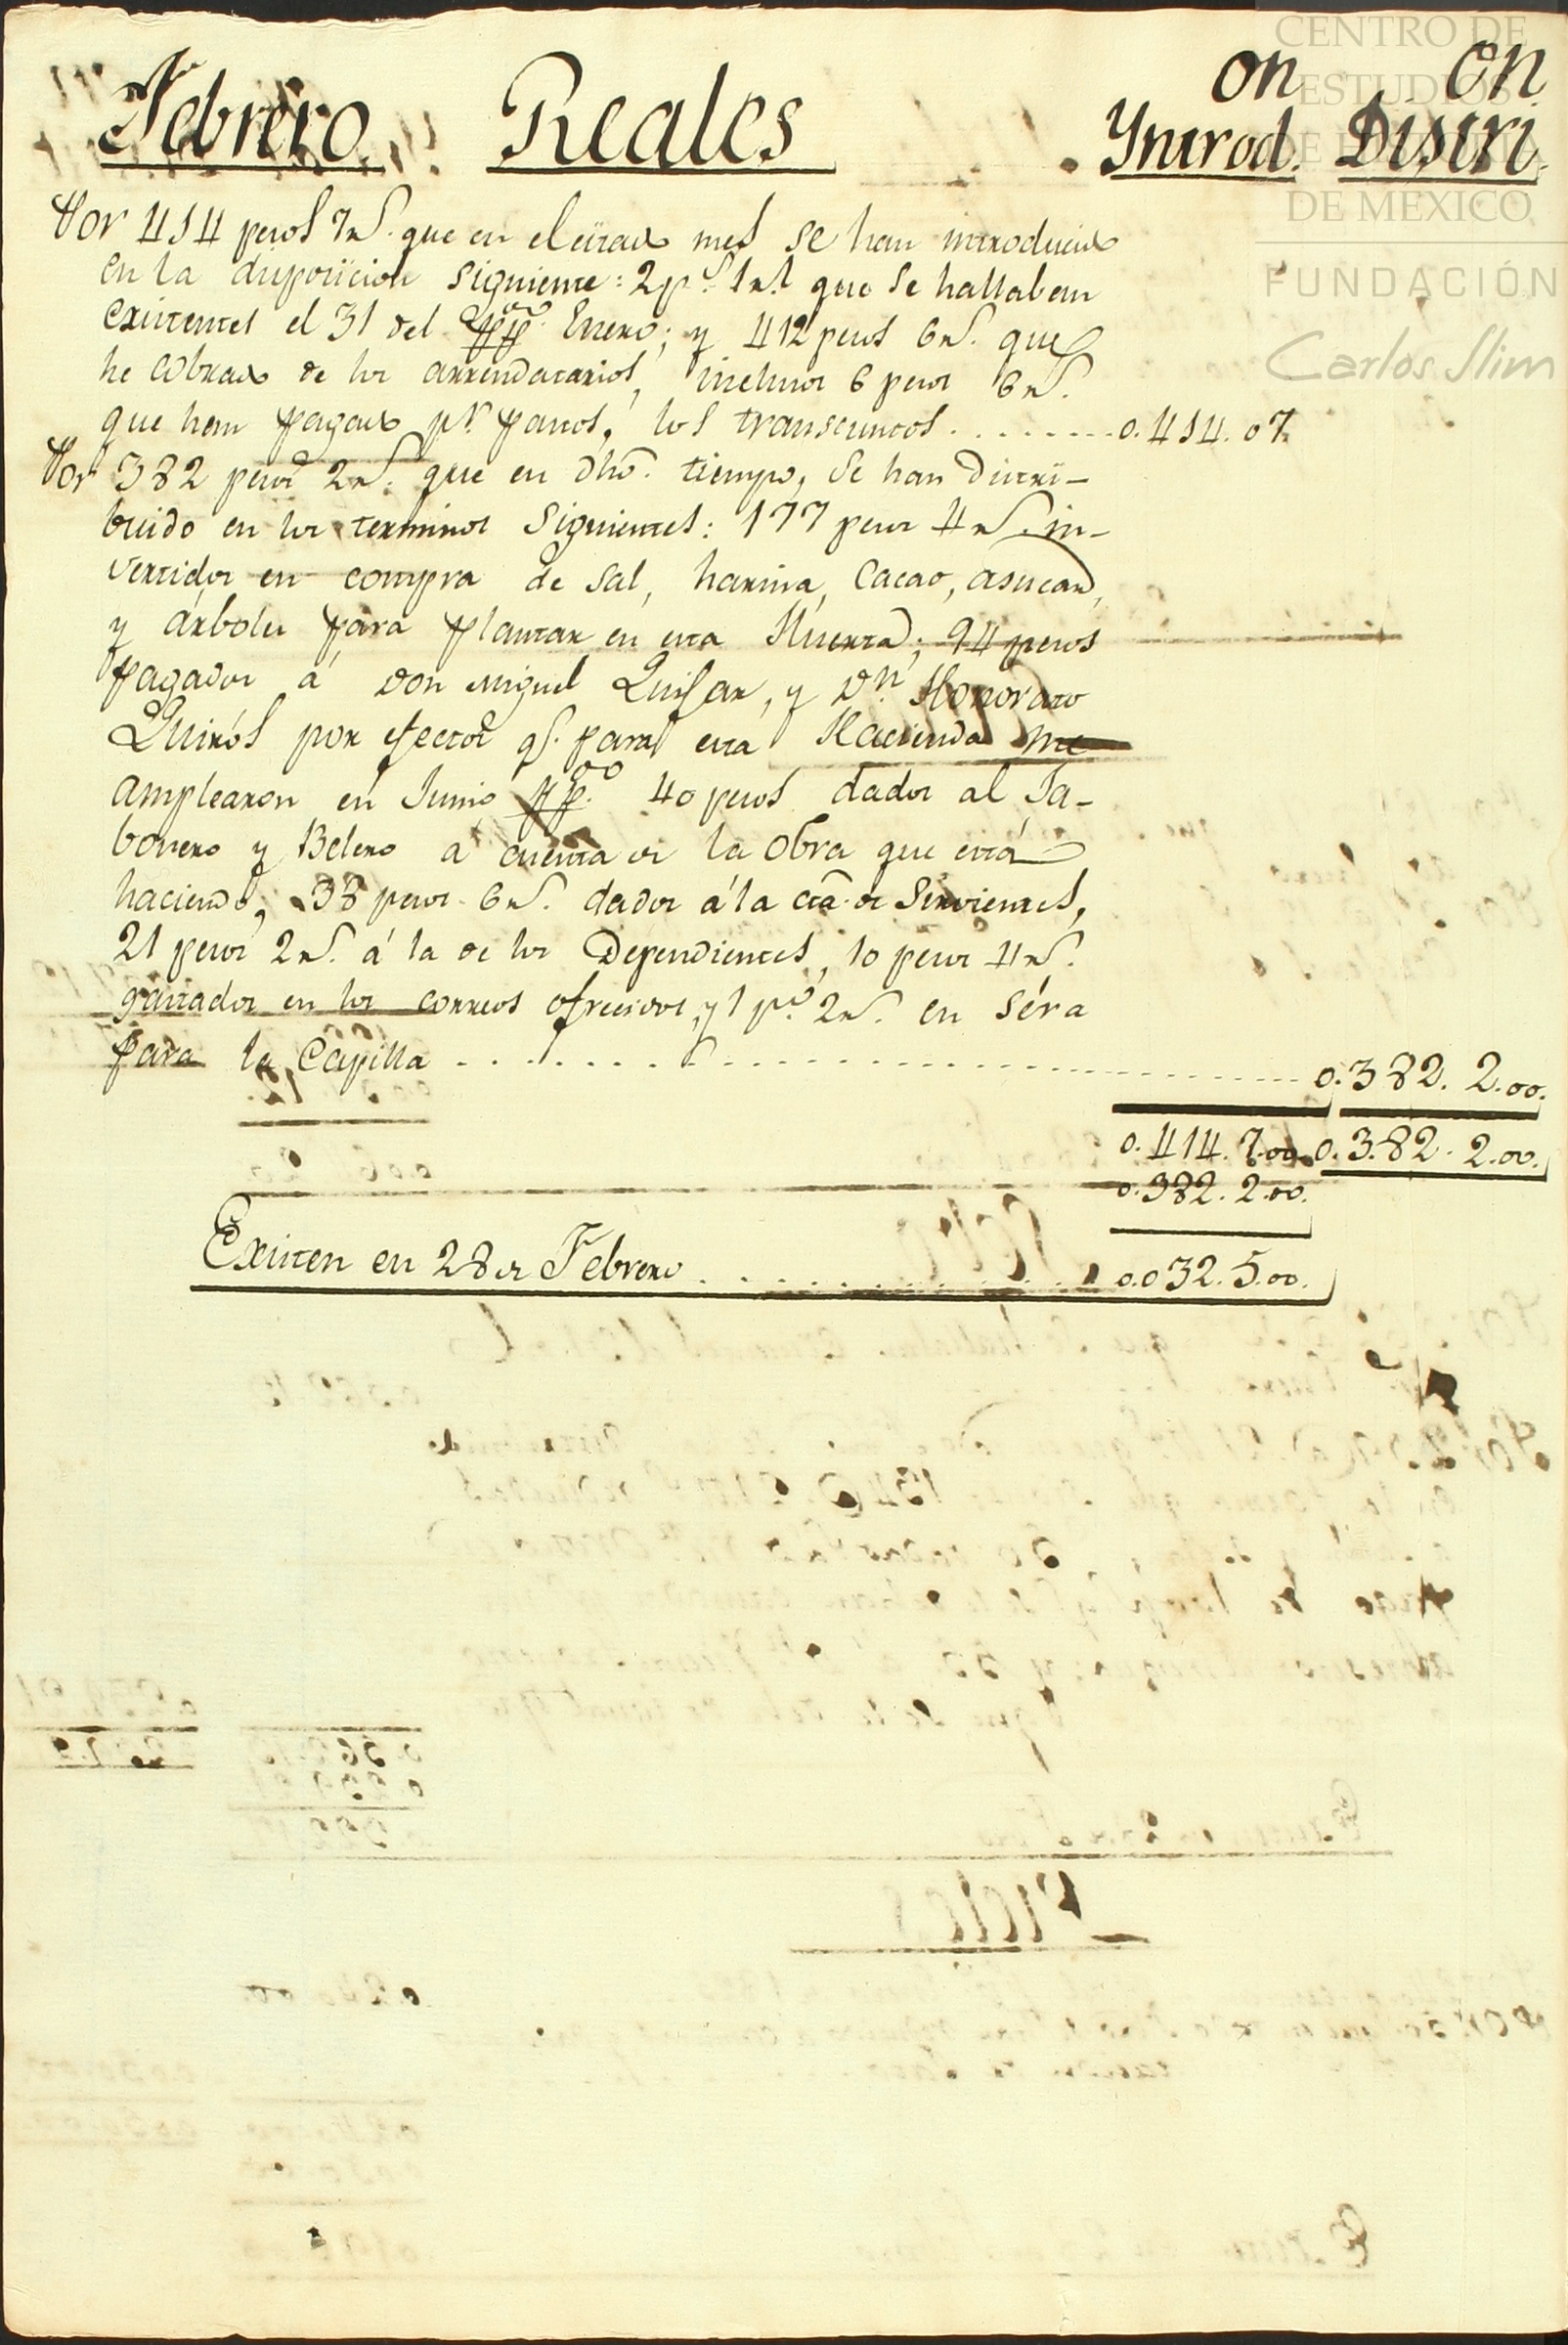 CENTRO DE
ESTUDIOS
DE HISTORIA
DE MÉXICO
FUNDACIÓN
Carlos Slim
Febrero. Reales Yntrod.on Distri.on
Por 414 pesos 7 r.s que en el citado mes se han introducido
en la disposicion siguiente: 2 p.s 1 r.l que se hallaban
existentes el 31 del pp.do Enero; y 412 pesos 6 r.s que
he cobrado de los arrendatarios, inclusos 6 pesos 6 r.s
que han pagado p.r pastos, los transeuntes . . . . . . . . 0.414.07.
Por 382 pesos 2 r.s que en dho. tiempo, se han distri-
buido en los terminos siguientes: 177 pesos 4 r.s in-
vertidos en compra de sal, harina, Cacao, asucar,
y arboles para plantar en esta Huerta; 94 pesos
pagados á Don Miguel Quijar, y D.n Honorato
Quirós por efectos q.e para esta Hacienda me
amplearon en Junio pp.do 40 pesos dados al Ja-
bonero y Belero á cuenta de la obra que está
haciendo, 38 pesos 6 r.s dados á la cta. de Sirvientes,
21 pesos 2 r.s á la de los Dependientes, 10 pesos 4 r.s
gastados en los correos ofrecidos, y 1 p.o 2 r.s en séra
para la Capilla . . . . . . . . . . . . 0.382.2.00.
0.414.7.00. 0.382.2.00.
0.382.2.00.
Existen en 28 de Febrero . . . . . . . . . . 0.032.5.00.